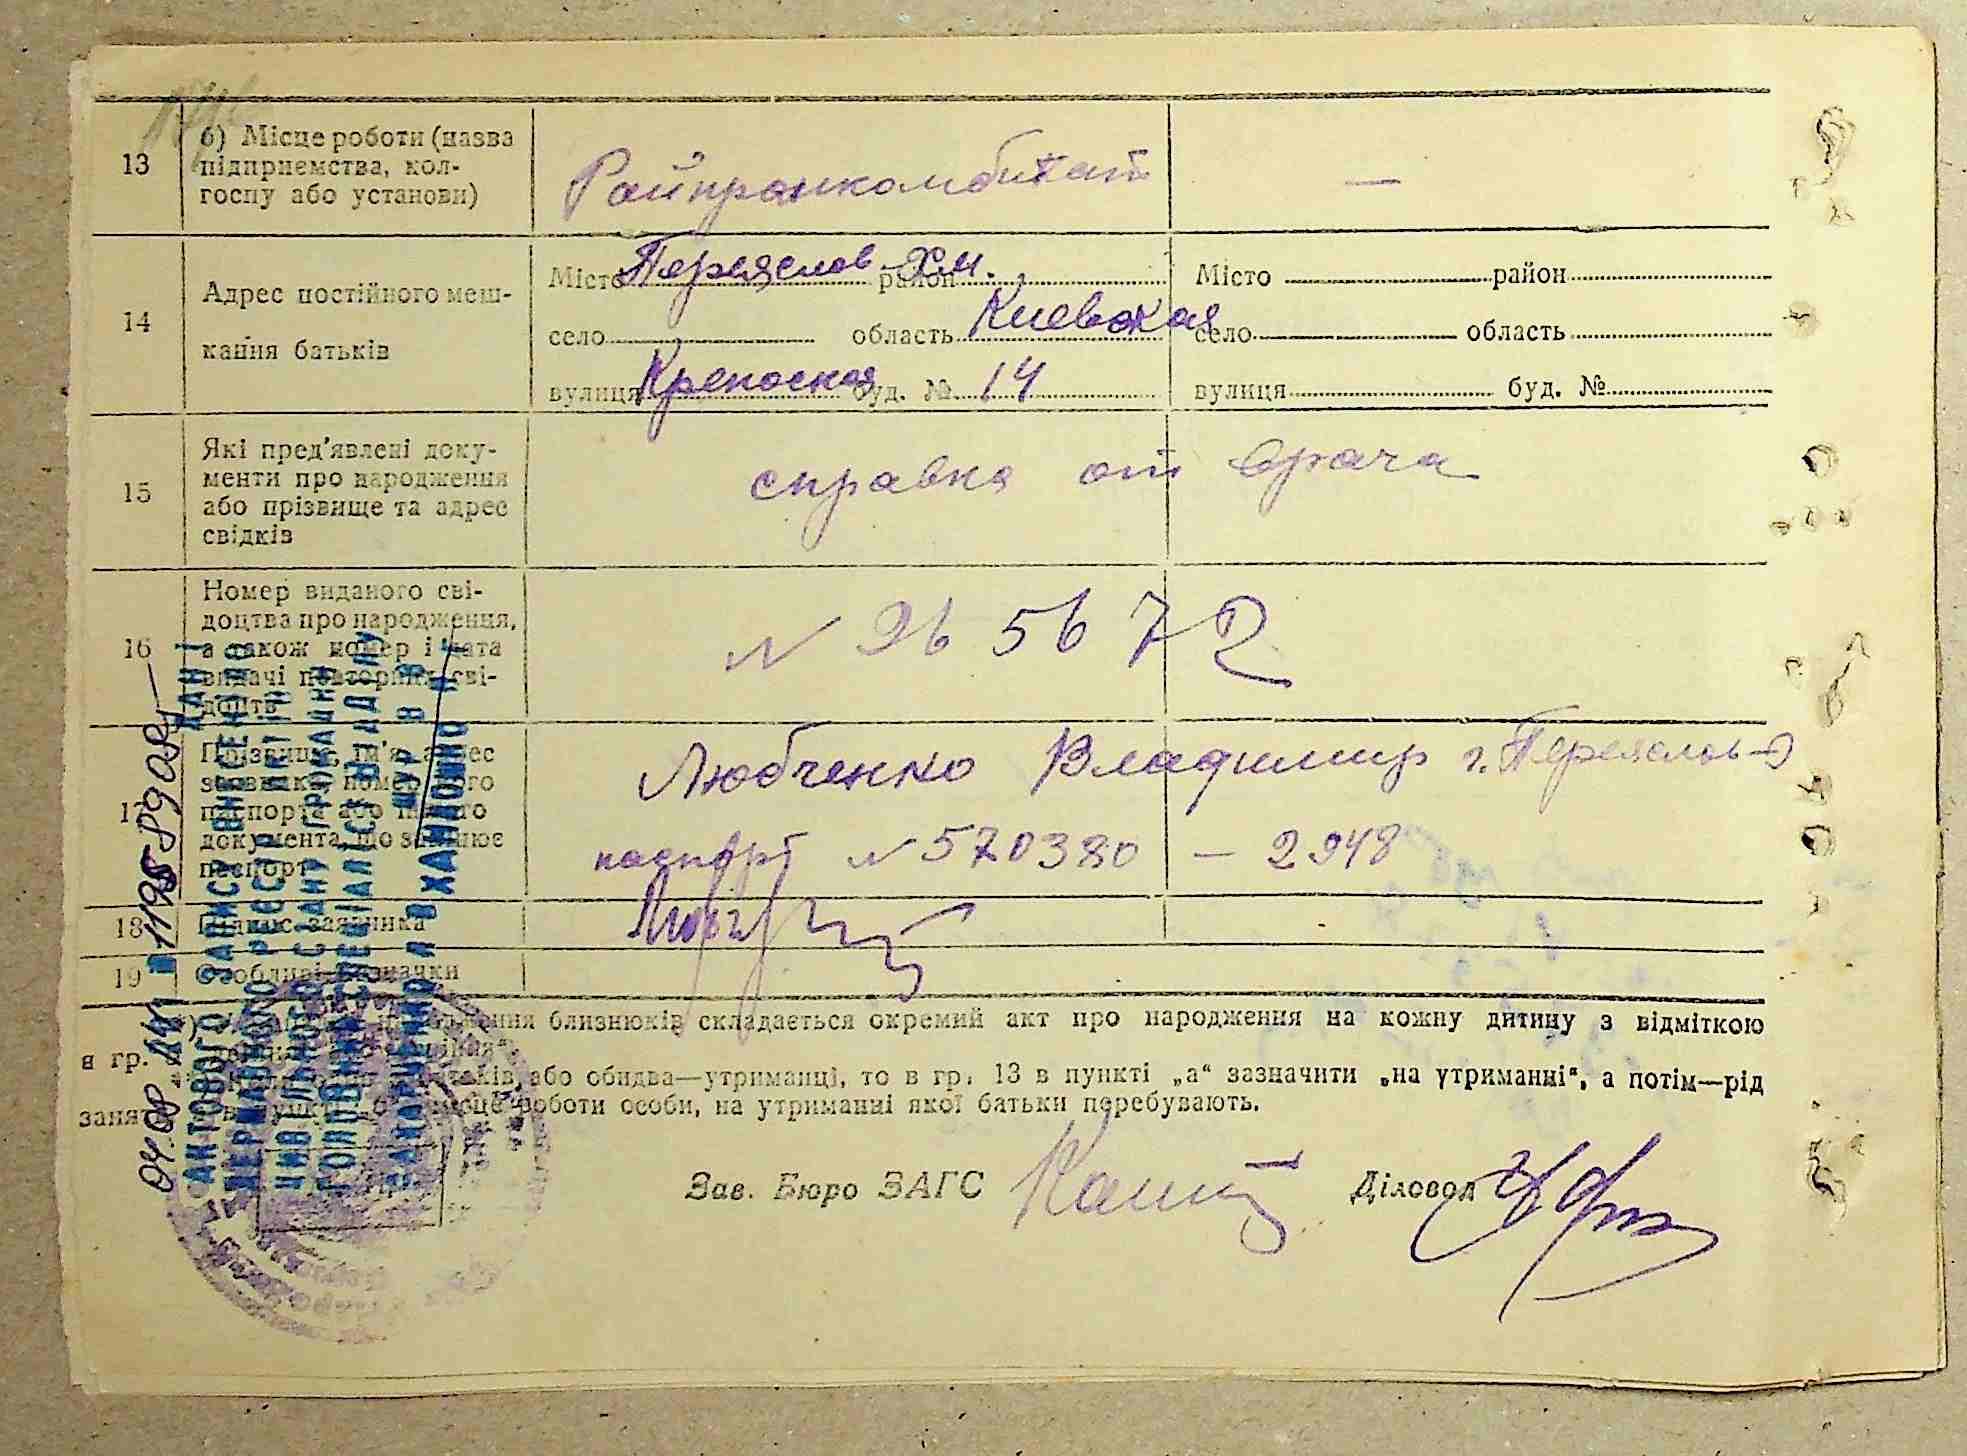 13
б) Місце роботи (назва
підприємства, кол-
госпу або установи)
Райпромкомбинат
—
14
Адрес постійного меш-
кання батьків
Місто Переяслов Хм. район
село область Киевская
вулиця буд. № 14
Місто район
село область
вулиця буд. №
15
Які пред'явлені доку-
менти про народження
або прізвище та адрес
свідків
справка от врача
16
Номер виданого сві-
доцтва про народження,
а також номер і дата
видачі повторних сві-
доцтв
N 265672
17
Прізвище, ім'я, адрес
заявника, номер його
паспорта або іншого
документа, що замінює
паспорт
Любченко Владимир г. Переяслов
паспорт N 570380 — 2948
18
Підпис заявника
19
Особливі відзначки
народження близнюків складається окремий акт про народження на кожну дитину з відміткою
в гр.
або обидва—утриманці, то в гр. 13 в пункті „а“ зазначити „на утриманні“, а потім—рід
роботи особи, на утриманні якої батьки перебувають.
Зав. Бюро ЗАГС
Діловод
ДАНІ
АКТОВОГО ЗАПИСУ ВНЕСЕНО ДО
ДЕРЖАВНОГО РЕЄСТРУ АКТІВ
ЦИВІЛЬНОГО СТАНУ ГРОМАДЯН
ГОЛОВНИЙ СПЕЦІАЛІСТ ВІДДІЛУ